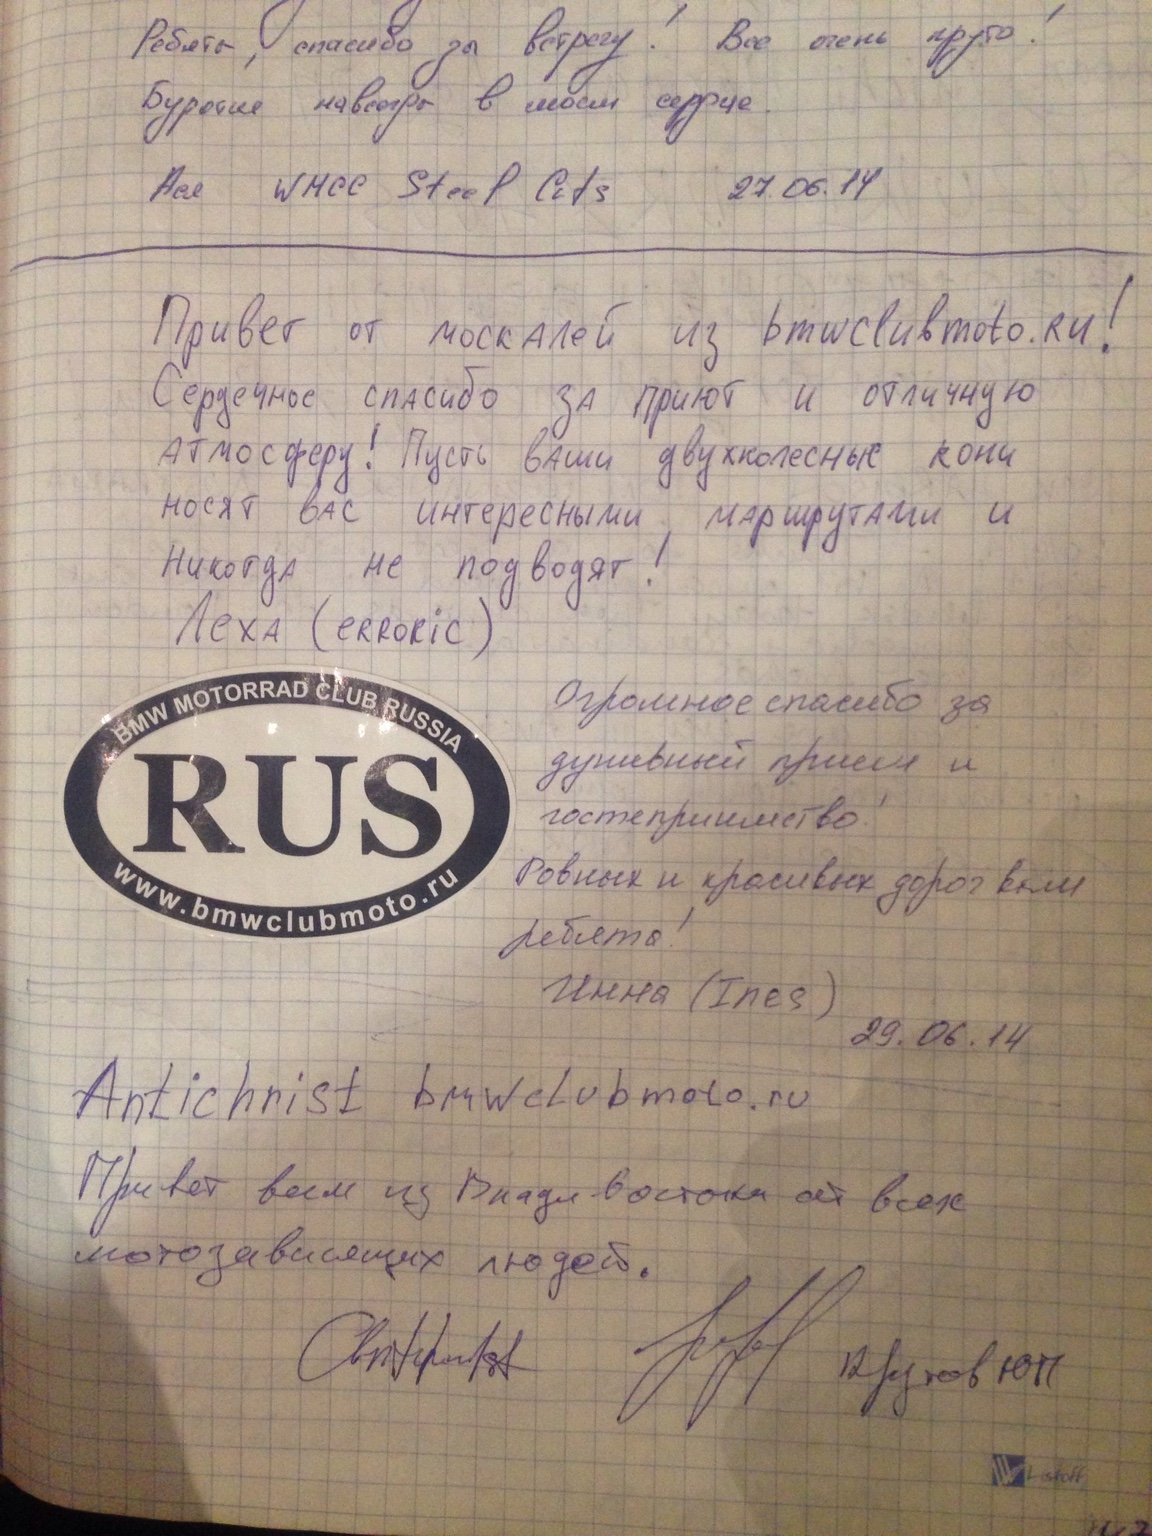 Ребята, спасибо за встречу! Все очень круто!
Бурятия навсегда в моём сердце.
Ася WMCC Steel Cats 27.06.14
Привет от москалей из bmwclubmoto.RU!
Сердечное спасибо за приют и отличную
атмосферу! Пусть ваши двухколесные кони
носят вас интересными маршрутами и
никогда не подводят!
Леха (erroric)
BMW MOTORRAD CLUB RUSSIA
RUS
www.bmwclubmoto.ru
Огромное спасибо за
душевный прием и
гостеприимство!
Ровных и красивых дорог вам
ребята!
Инна (Ines)
29.06.14
Antichrist bmwclubmoto.ru
Привет всем из Владивостока от всех
мотозависящих людей.
Крутов ЮП
Listoff